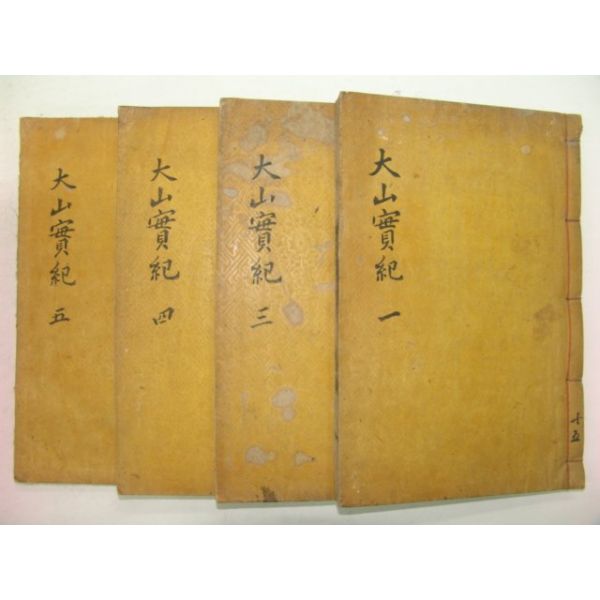 大山實紀 一
十五
大山實紀 三
大山實紀 四
大山實紀 五